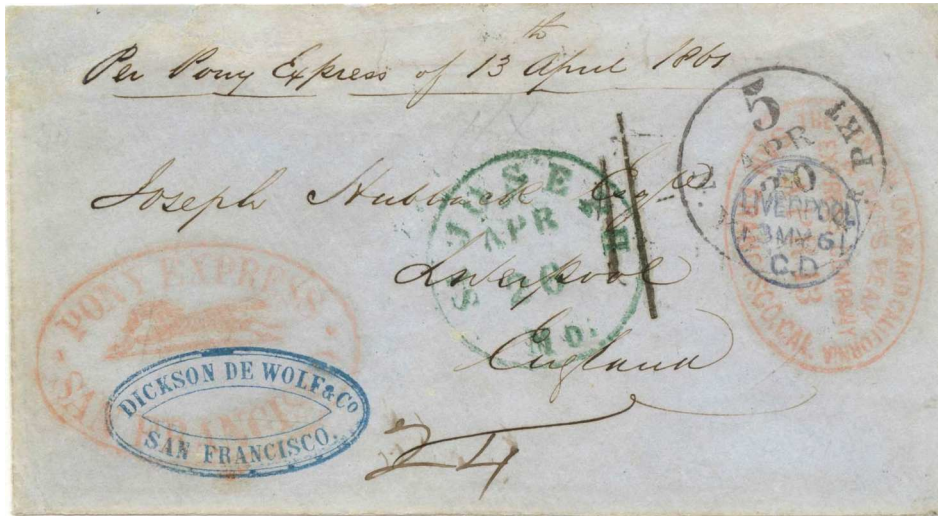 Per Pony Express of 13th April 1861
Joseph Hubback Esqr
Liverpool
England
24
PONY EXPRESS
SAN FRANCISCO
DICKSON DE WOLF & Co
SAN FRANCISCO.
ST JOSEPH
APR
26
MO.
5
APR
30
PKT
LIVERPOOL
13 MY 61
C.D
THE CENTRAL OVERLAND CALIFORNIA
EXPRESS COMPANY
SAN FRANCISCO, CAL